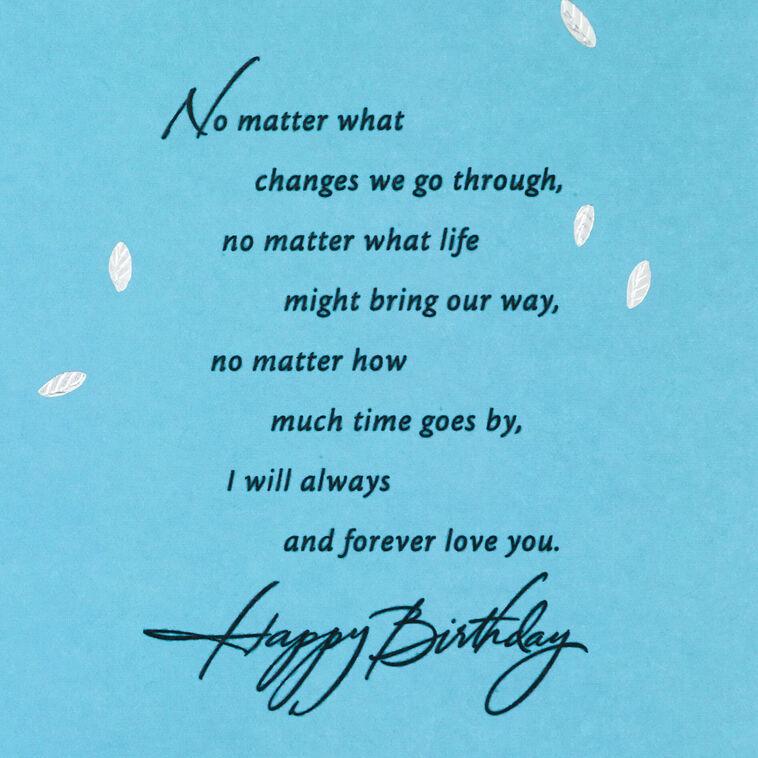 No matter what
changes we go through,
no matter what life
might bring our way,
no matter how
much time goes by,
I will always
and forever love you.
Happy Birthday